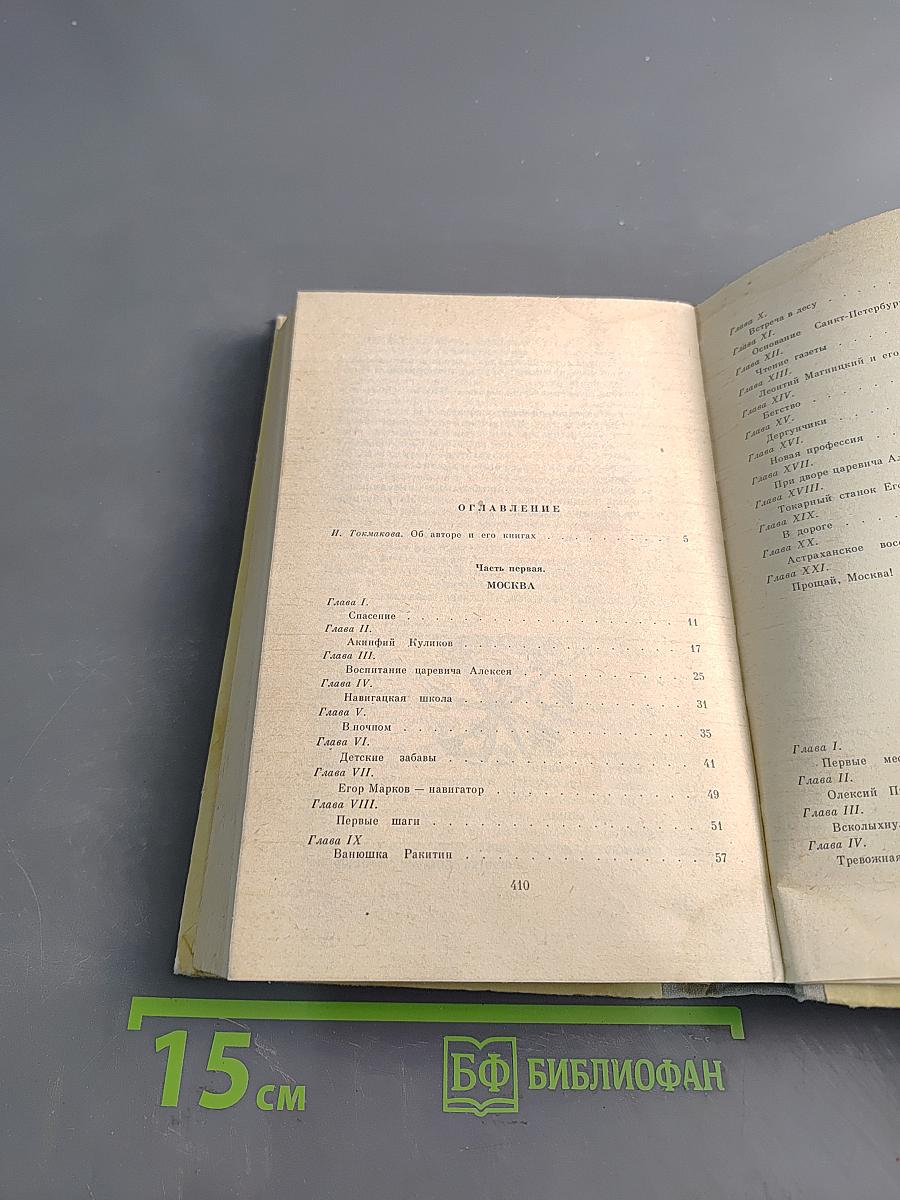 ОГЛАВЛЕНИЕ
И. Токмакова. Об авторе и его книгах . . . . . . . . . . . 5
Часть первая.
МОСКВА
Глава I.
Спасение . . . . . . . . . . . . . . . . . . . . . . 11
Глава II.
Акинфий Куликов . . . . . . . . . . . . . . . . . . 17
Глава III.
Воспитание царевича Алексея . . . . . . . . . . . . 25
Глава IV.
Навигацкая школа . . . . . . . . . . . . . . . . . . 31
Глава V.
В ночном . . . . . . . . . . . . . . . . . . . . . . 35
Глава VI.
Детские забавы . . . . . . . . . . . . . . . . . . . 41
Глава VII.
Егор Марков — навигатор . . . . . . . . . . . . . . 49
Глава VIII.
Первые шаги . . . . . . . . . . . . . . . . . . . . 51
Глава IX
Ванюшка Ракитин . . . . . . . . . . . . . . . . . . 57
410
Глава X.
Встреча в лесу . . . .
Глава XI.
Основание Санкт-Петербур
Глава XII.
Чтение газеты . . . .
Глава XIII.
Леонтий Магницкий и его
Глава XIV.
Бегство . . . .
Глава XV.
Дергунчики . . . .
Глава XVI.
Новая профессия . . .
Глава XVII.
При дворе царевича Ал
Глава XVIII.
Токарный станок Его
Глава XIX.
В дороге . . . .
Глава XX.
Астраханское восс
Глава XXI.
Прощай, Москва!
Глава I.
Первые мес
Глава II.
Олексий П
Глава III.
Всколыхну
Глава IV.
Тревожная
15 см
БФ БИБЛИОФАН